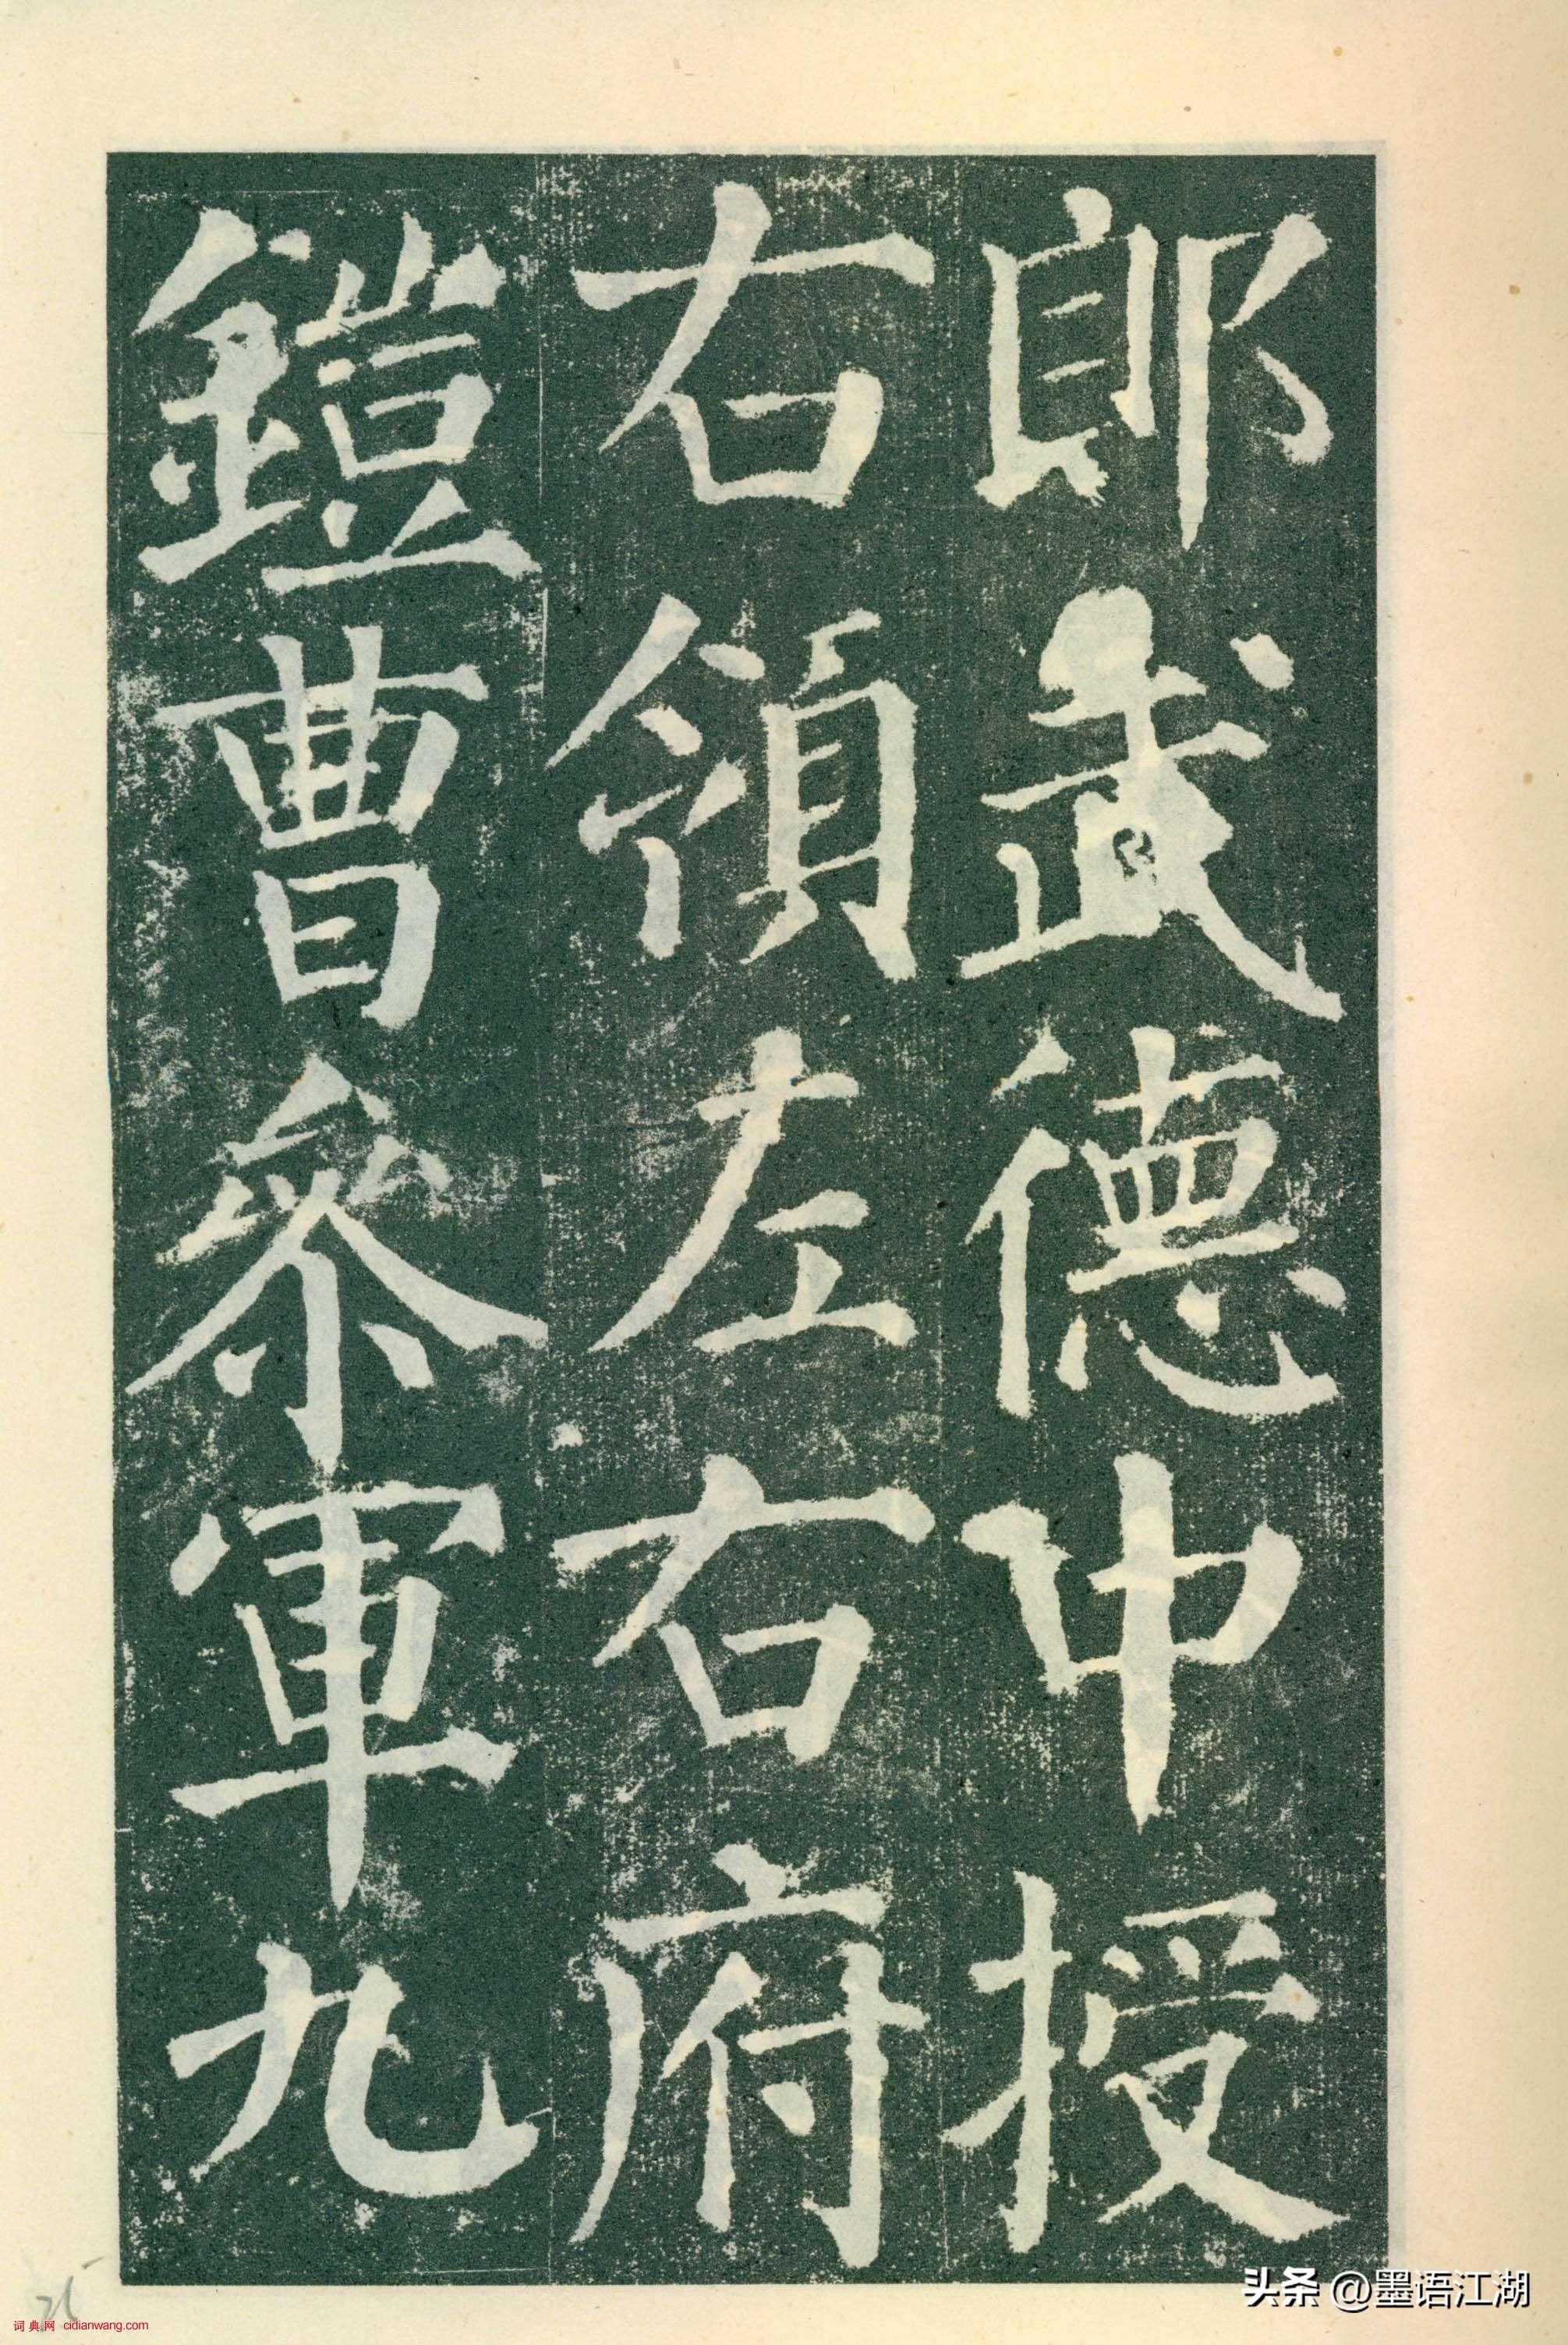 郎武德中授
右領左右府
鎧曹參軍九
头条 @墨语江湖
词典网 cidianwang.com